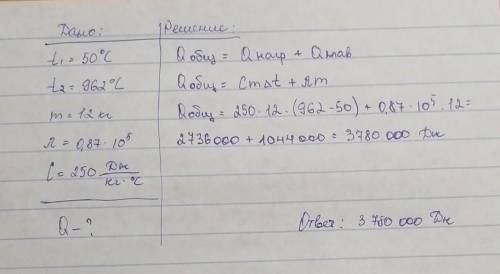 Дано:
t₁ = 50°C
t₂ = 962°C
m = 12 кг
λ = 0,87 · 10⁵
C = 250 Дж/кг · °C
Q – ?
Решение:
Qобщ = Qнагр + Qплав
Qобщ = Cm∆t + λm
Qобщ = 250 · 12 · (962 - 50) + 0,87 · 10⁵ · 12 =
2736000 + 1044000 = 3780 000 Дж
Ответ: 3 780 000 Дж